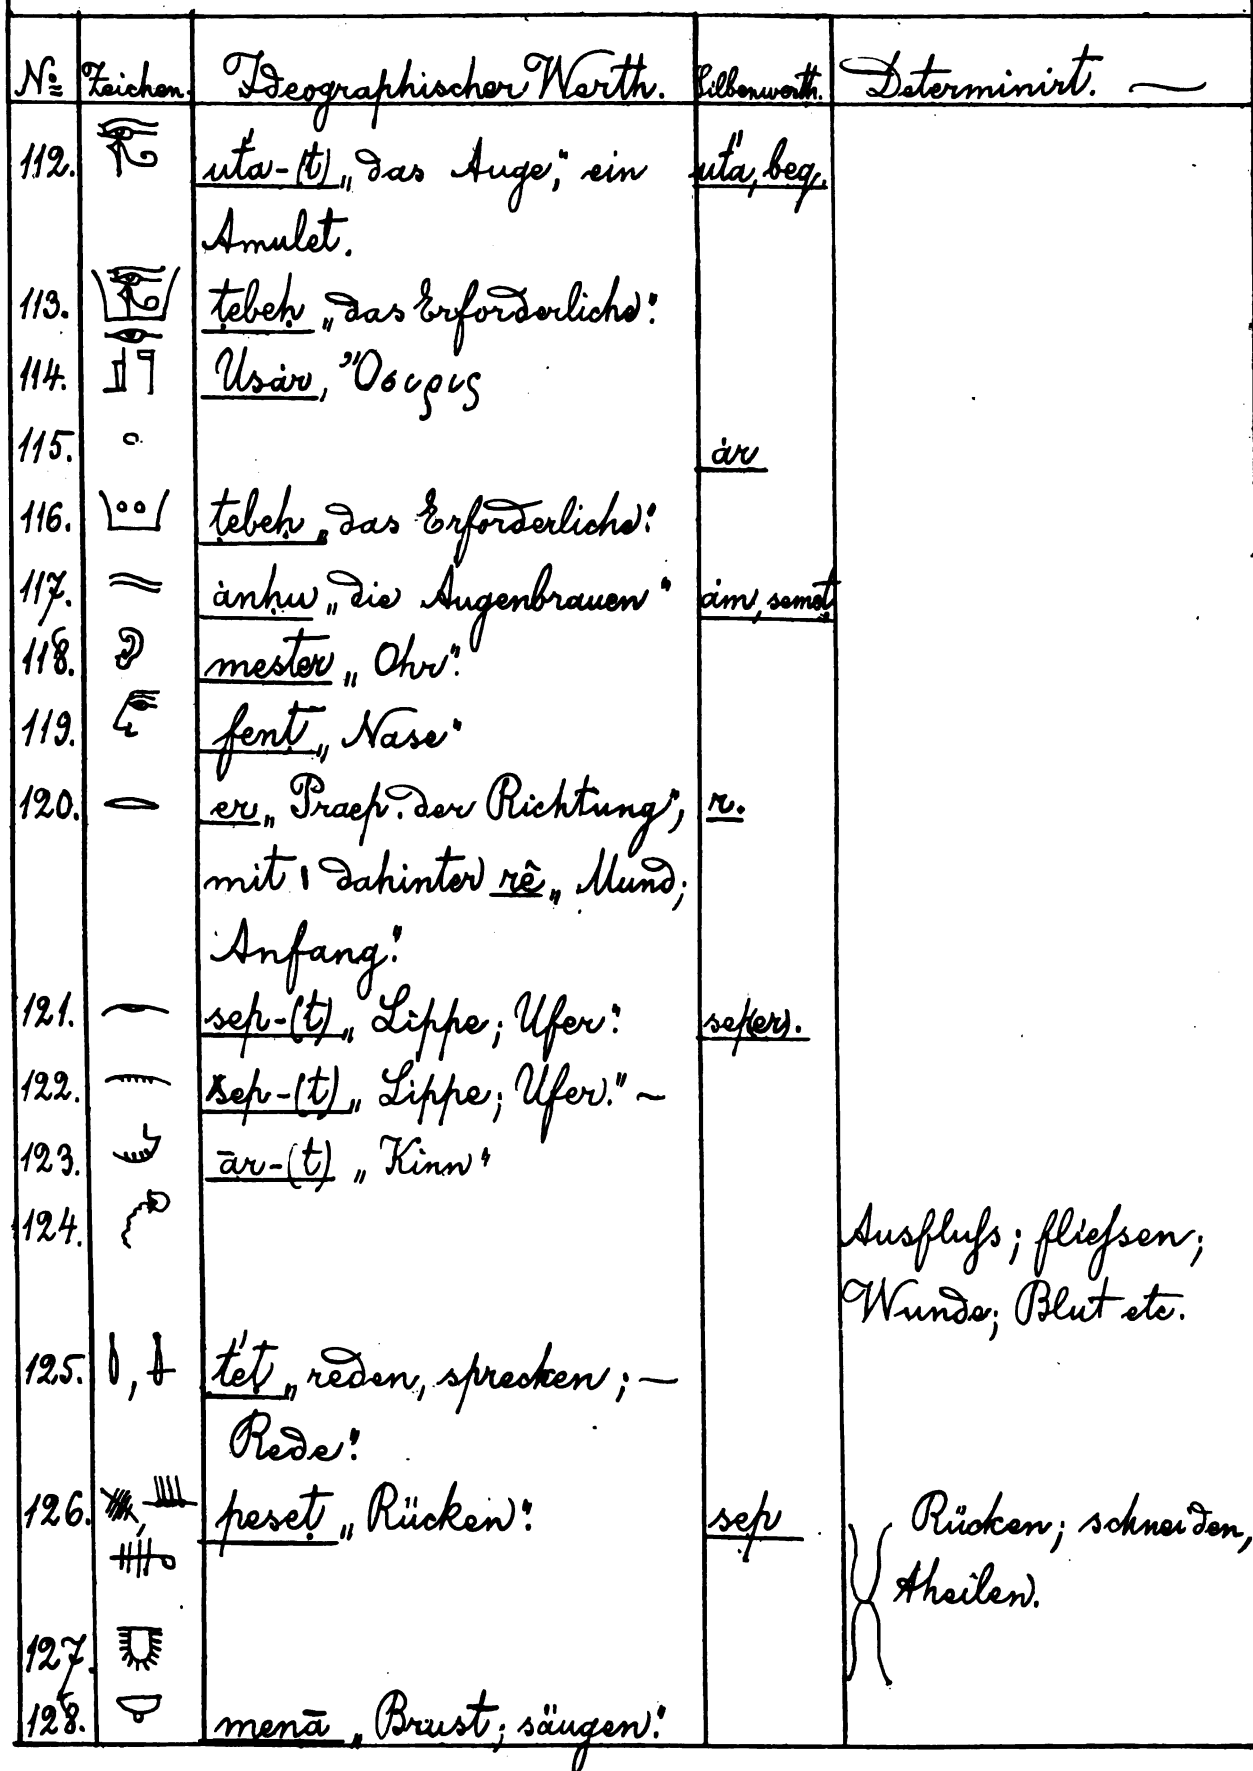 № Zeichen. Ideographischer Werth. Silbenwerth. Determinirt. —
112. 𓂀 ut'a-(t) „das Auge,“ ein ut'a, beq.
Amulet.
113. ṭebeḥ „das Erforderliche“.
114. Usȧr, Ὄσιρις
115. ȧr
116. ṭebeḥ „das Erforderliche“.
117. ȧnḥu „die Augenbrauen“ ȧm, semṭ
118. mester „Ohr“.
119. fenṭ „Nase“
120. er „Praep. der Richtung“, r.
mit 𓏤 dahinter rê „Mund;
Anfang“.
121. sep-(t) „Lippe; Ufer“. sep(er).
122. sep-(t) „Lippe; Ufer.“ ~
123. ār-(t) „Kinn“
124. Ausfluſs; flieſsen;
Wunde; Blut etc.
125. t'eṭ „reden, sprechen; —
Rede“.
126. peseṭ „Rücken“. sep Rücken; schneiden,
theilen.
127.
128. menā „Brust; säugen“.